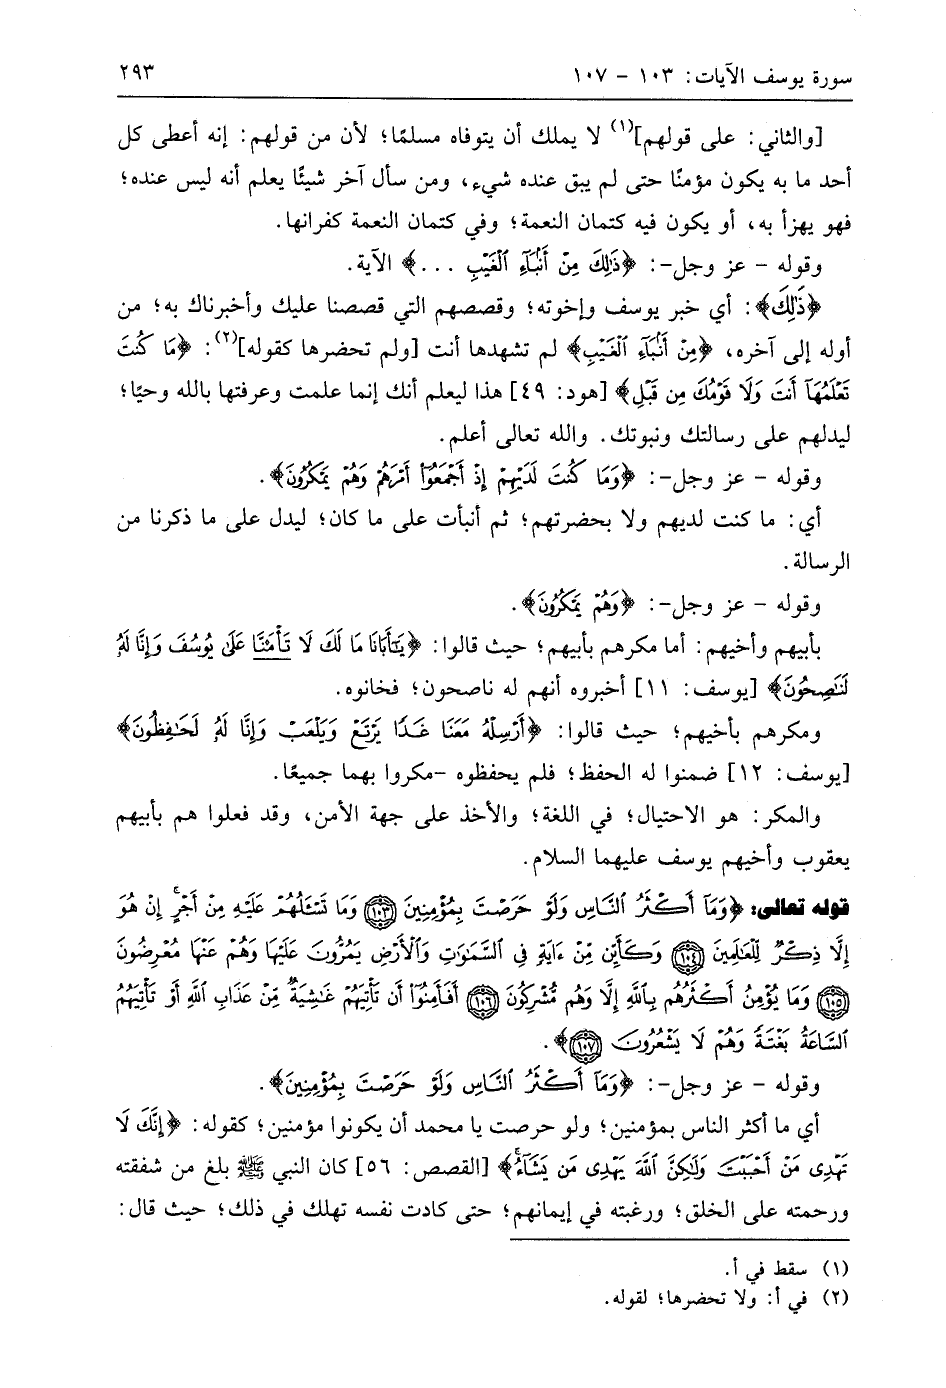 سورة يوسف الآيات: ١٠٣ - ١٠٧ ٢٩٣
[والثاني: على قولهم](١) لا يملك أن يتوفاه مسلمًا؛ لأن من قولهم: إنه أعطى كل
أحد ما به يكون مؤمنًا حتى لم يبق عنده شيء، ومن سأل آخر شيئًا يعلم أنه ليس عنده؛
فهو يهزأ به، أو يكون فيه كتمان النعمة؛ وفي كتمان النعمة كفرانها.
وقوله - عز وجل-: ﴿ذَٰلِكَ مِنْ أَنۢبَآءِ ٱلْغَيْبِ ...﴾ الآية.
﴿ذَٰلِكَ﴾: أي خبر يوسف وإخوته؛ وقصصهم التي قصصنا عليك وأخبرناك به؛ من
أوله إلى آخره، ﴿مِنْ أَنۢبَآءِ ٱلْغَيْبِ﴾ لم تشهدها أنت [ولم تحضرها كقوله](٢): ﴿مَا كُنتَ
تَعْلَمُهَآ أَنتَ وَلَا قَوْمُكَ مِن قَبْلِ﴾ [هود: ٤٩] هذا ليعلم أنك إنما علمت وعرفتها بالله وحيًا؛
ليدلهم على رسالتك ونبوتك. والله تعالى أعلم.
وقوله - عز وجل-: ﴿وَمَا كُنتَ لَدَيْهِمْ إِذْ أَجْمَعُوٓا۟ أَمْرَهُمْ وَهُمْ يَمْكُرُونَ﴾.
أي: ما كنت لديهم ولا بحضرتهم؛ ثم أنبأت على ما كان؛ ليدل على ما ذكرنا من
الرسالة.
وقوله - عز وجل-: ﴿وَهُمْ يَمْكُرُونَ﴾.
بأبيهم وأخيهم: أما مكرهم بأبيهم؛ حيث قالوا: ﴿يَـٰٓأَبَانَا مَا لَكَ لَا تَأْمَ۫نَّا عَلَىٰ يُوسُفَ وَإِنَّا لَهُۥ
لَنَـٰصِحُونَ﴾ [يوسف: ١١] أخبروه أنهم له ناصحون؛ فخانوه.
ومكرهم بأخيهم؛ حيث قالوا: ﴿أَرْسِلْهُ مَعَنَا غَدًا يَرْتَعْ وَيَلْعَبْ وَإِنَّا لَهُۥ لَحَـٰفِظُونَ﴾
[يوسف: ١٢] ضمنوا له الحفظ؛ فلم يحفظوه -مكروا بهما جميعًا.
والمكر: هو الاحتيال؛ في اللغة؛ والأخذ على جهة الأمن، وقد فعلوا هم بأبيهم
يعقوب وأخيهم يوسف عليهما السلام.
قوله تعالى: ﴿وَمَآ أَكْثَرُ ٱلنَّاسِ وَلَوْ حَرَصْتَ بِمُؤْمِنِينَ ١٠٣ وَمَا تَسْـَٔلُهُمْ عَلَيْهِ مِنْ أَجْرٍ إِنْ هُوَ
إِلَّا ذِكْرٌ لِّلْعَـٰلَمِينَ ١٠٤ وَكَأَيِّن مِّنْ ءَايَةٍ فِى ٱلسَّمَـٰوَٰتِ وَٱلْأَرْضِ يَمُرُّونَ عَلَيْهَا وَهُمْ عَنْهَا مُعْرِضُونَ
١٠٥ وَمَا يُؤْمِنُ أَكْثَرُهُم بِٱللَّهِ إِلَّا وَهُم مُّشْرِكُونَ ١٠٦ أَفَأَمِنُوٓا۟ أَن تَأْتِيَهُمْ غَـٰشِيَةٌ مِّنْ عَذَابِ ٱللَّهِ أَوْ تَأْتِيَهُمُ
ٱلسَّاعَةُ بَغْتَةً وَهُمْ لَا يَشْعُرُونَ ١٠٧﴾.
وقوله - عز وجل-: ﴿وَمَآ أَكْثَرُ ٱلنَّاسِ وَلَوْ حَرَصْتَ بِمُؤْمِنِينَ﴾.
أي ما أكثر الناس بمؤمنين؛ ولو حرصت يا محمد أن يكونوا مؤمنين؛ كقوله: ﴿إِنَّكَ لَا
تَهْدِى مَنْ أَحْبَبْتَ وَلَـٰكِنَّ ٱللَّهَ يَهْدِى مَن يَشَآءُ﴾ [القصص: ٥٦] كان النبي ﷺ بلغ من شفقته
ورحمته على الخلق؛ ورغبته في إيمانهم؛ حتى كادت نفسه تهلك في ذلك؛ حيث قال:
(١) سقط في أ.
(٢) في أ: ولا تحضرها؛ لقوله.